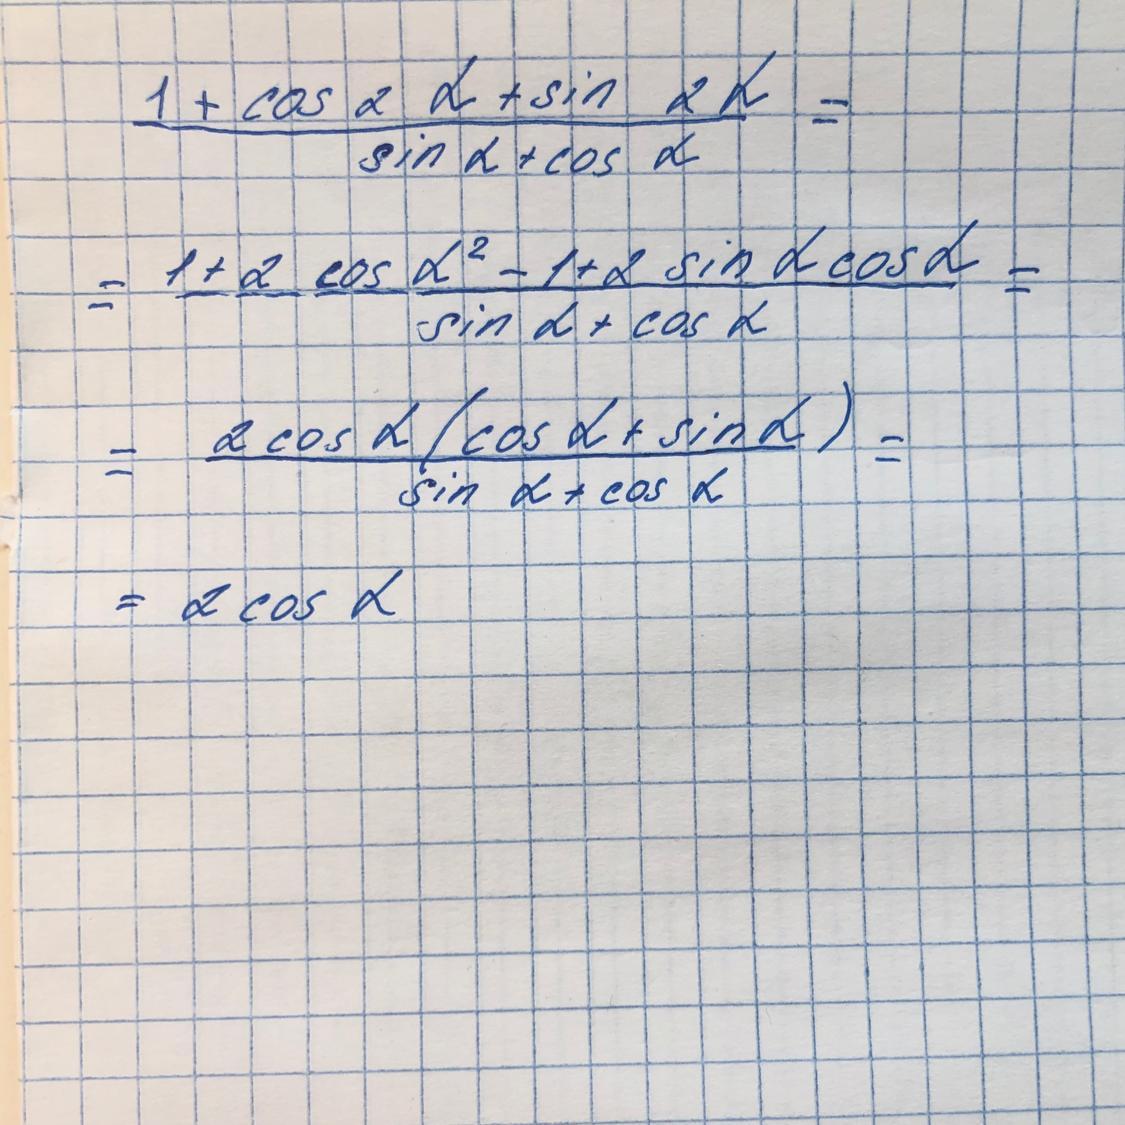 1 + cos 2 α + sin 2 α =
sin α + cos α
= 1 + 2 cos α² - 1 + 2 sin α cos α =
sin α + cos α
= 2 cos α (cos α + sin α) =
sin α + cos α
= 2 cos α